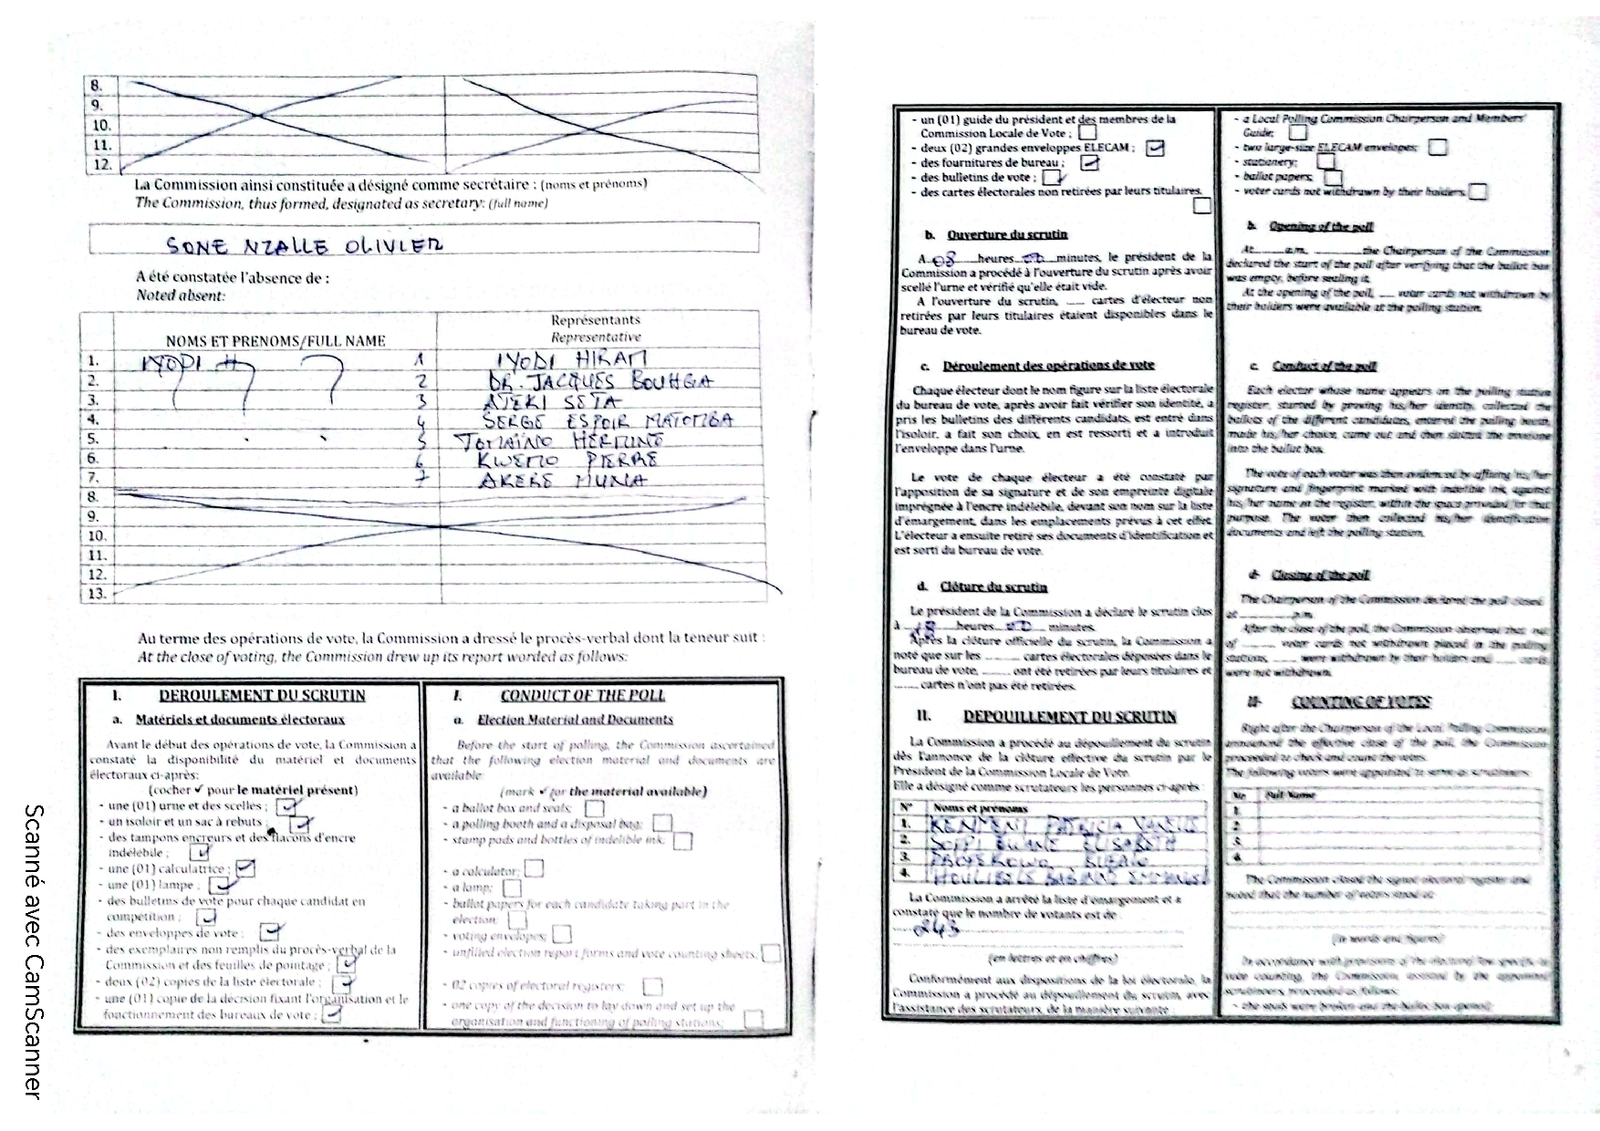 8.
9.
10.
11.
12.
La Commission ainsi constituée a désigné comme secrétaire : (noms et prénoms)
The Commission, thus formed, designated as secretary: (full name)
SONE NZALLE OLIVIER
A été constatée l'absence de :
Noted absent:
NOMS ET PRENOMS/FULL NAME
Représentants
Representative
1. IYODI H 1 IYODI HIRAM
2. 2 DR. JACQUES BOUHGA
3. 3 ATEKI SETA
4. 4 SERGE ESPOIR MATOMBA
5. 5 TOMAINO HERMINE
6. 6 KWEMO PIERRE
7. 7 AKERE MUNA
8.
9.
10.
11.
12.
13.
Au terme des opérations de vote, la Commission a dressé le procès-verbal dont la teneur suit :
At the close of voting, the Commission drew up its report worded as follows:
I. DEROULEMENT DU SCRUTIN
a. Matériels et documents électoraux
Avant le début des opérations de vote, la Commission a
constaté la disponibilité du matériel et documents
électoraux ci-après:
(cocher ✓ pour le matériel présent)
- une (01) urne et des scelles ;
- un isoloir et un sac à rebuts ;
- des tampons encreurs et des flacons d'encre
indélébile ;
- une (01) calculatrice ;
- une (01) lampe ;
- des bulletins de vote pour chaque candidat en
compétition ;
- des enveloppes de vote ;
- des exemplaires non remplis du procès-verbal de la
Commission et des feuilles de pointage ;
- deux (02) copies de la liste électorale ;
- une (01) copie de la décision fixant l'organisation et le
fonctionnement des bureaux de vote ;
I. CONDUCT OF THE POLL
a. Election Material and Documents
Before the start of polling, the Commission ascertained
that the following election material and documents are
available:
(mark ✓ for the material available)
- a ballot box and seals;
- a polling booth and a disposal bag;
- stamp pads and bottles of indelible ink;
- a calculator;
- a lamp;
- ballot papers for each candidate taking part in the
election;
- voting envelopes;
- unfilled election report forms and vote counting sheets;
- 02 copies of electoral registers;
- one copy of the decision to lay down and set up the
organisation and functioning of polling stations;
- un (01) guide du président et des membres de la
Commission Locale de Vote ;
- deux (02) grandes enveloppes ELECAM ;
- des fournitures de bureau ;
- des bulletins de vote ;
- des cartes électorales non retirées par leurs titulaires.
b. Ouverture du scrutin
A 08 heures 00 minutes, le président de la
Commission a procédé à l'ouverture du scrutin après avoir
scellé l'urne et vérifié qu'elle était vide.
A l'ouverture du scrutin, ..... cartes d'électeur non
retirées par leurs titulaires étaient disponibles dans le
bureau de vote.
c. Déroulement des opérations de vote
Chaque électeur dont le nom figure sur la liste électorale
du bureau de vote, après avoir fait vérifier son identité, a
pris les bulletins des différents candidats, est entré dans
l'isoloir, a fait son choix, en est ressorti et a introduit
l'enveloppe dans l'urne.
Le vote de chaque électeur a été constaté par
l'apposition de sa signature et de son empreinte digitale
imprégnée à l'encre indélébile, devant son nom sur la liste
d'émargement, dans les emplacements prévus à cet effet.
L'électeur a ensuite retiré ses documents d'identification et
est sorti du bureau de vote.
d. Clôture du scrutin
Le président de la Commission a déclaré le scrutin clos
à 18 heures 00 minutes.
Après la clôture officielle du scrutin, la Commission a
noté que sur les ........ cartes électorales déposées dans le
bureau de vote, ....... ont été retirées par leurs titulaires et
....... cartes n'ont pas été retirées.
II. DEPOUILLEMENT DU SCRUTIN
La Commission a procédé au dépouillement du scrutin
dès l'annonce de la clôture effective du scrutin par le
Président de la Commission Locale de Vote.
Elle a désigné comme scrutateurs les personnes ci-après :
N° Noms et prénoms
1. PATRICIA
2. ELISABETH
3.
4.
La Commission a arrêté la liste d'émargement et a
constaté que le nombre de votants est de :
243
(en lettres et en chiffres)
Conformément aux dispositions de la loi électorale, la
Commission a procédé au dépouillement du scrutin, avec
l'assistance des scrutateurs, de la manière suivante :
- a Local Polling Commission Chairperson and Members'
Guide;
- two large-size ELECAM envelopes;
- stationery;
- ballot papers;
- voter cards not withdrawn by their holders.
b. Opening of the poll
At ........ a.m, ........ the Chairperson of the Commission
declared the start of the poll after verifying that the ballot box
was empty, before sealing it.
At the opening of the poll, .... voter cards not withdrawn by
their holders were available at the polling station.
c. Conduct of the poll
Each elector whose name appears on the polling station
register, started by proving his/her identity, collected the
ballots of the different candidates, entered the polling booth,
made his/her choice, came out and then slotted the envelope
into the ballot box.
The vote of each voter was then evidenced by affixing his/her
signature and fingerprint marked with indelible ink, against
his/her name in the register, within the space provided for that
purpose. The voter then collected his/her identification
documents and left the polling station.
d- Closing of the poll
The Chairperson of the Commission declared the poll closed
at ............ p.m.
After the close of the poll, the Commission observed that out
of ........ voter cards not withdrawn placed in the polling
stations, ...... were withdrawn by their holders and ...... cards
were not withdrawn.
II- COUNTING OF VOTES
Right after the Chairperson of the Local Polling Commission
announced the effective close of the poll, the Commission
proceeded to check and count the votes.
The following voters were appointed to serve as scrutineers:
No Full Name
1.
2.
3.
4.
The Commission closed the signed electoral register and
noted that the number of voters stood at:
(in words and figures)
In accordance with provisions of the electoral law specific to
vote counting, the Commission, assisted by the appointed
scrutineers, proceeded as follows:
- the seals were broken and the ballot box opened;
Scanné avec CamScanner